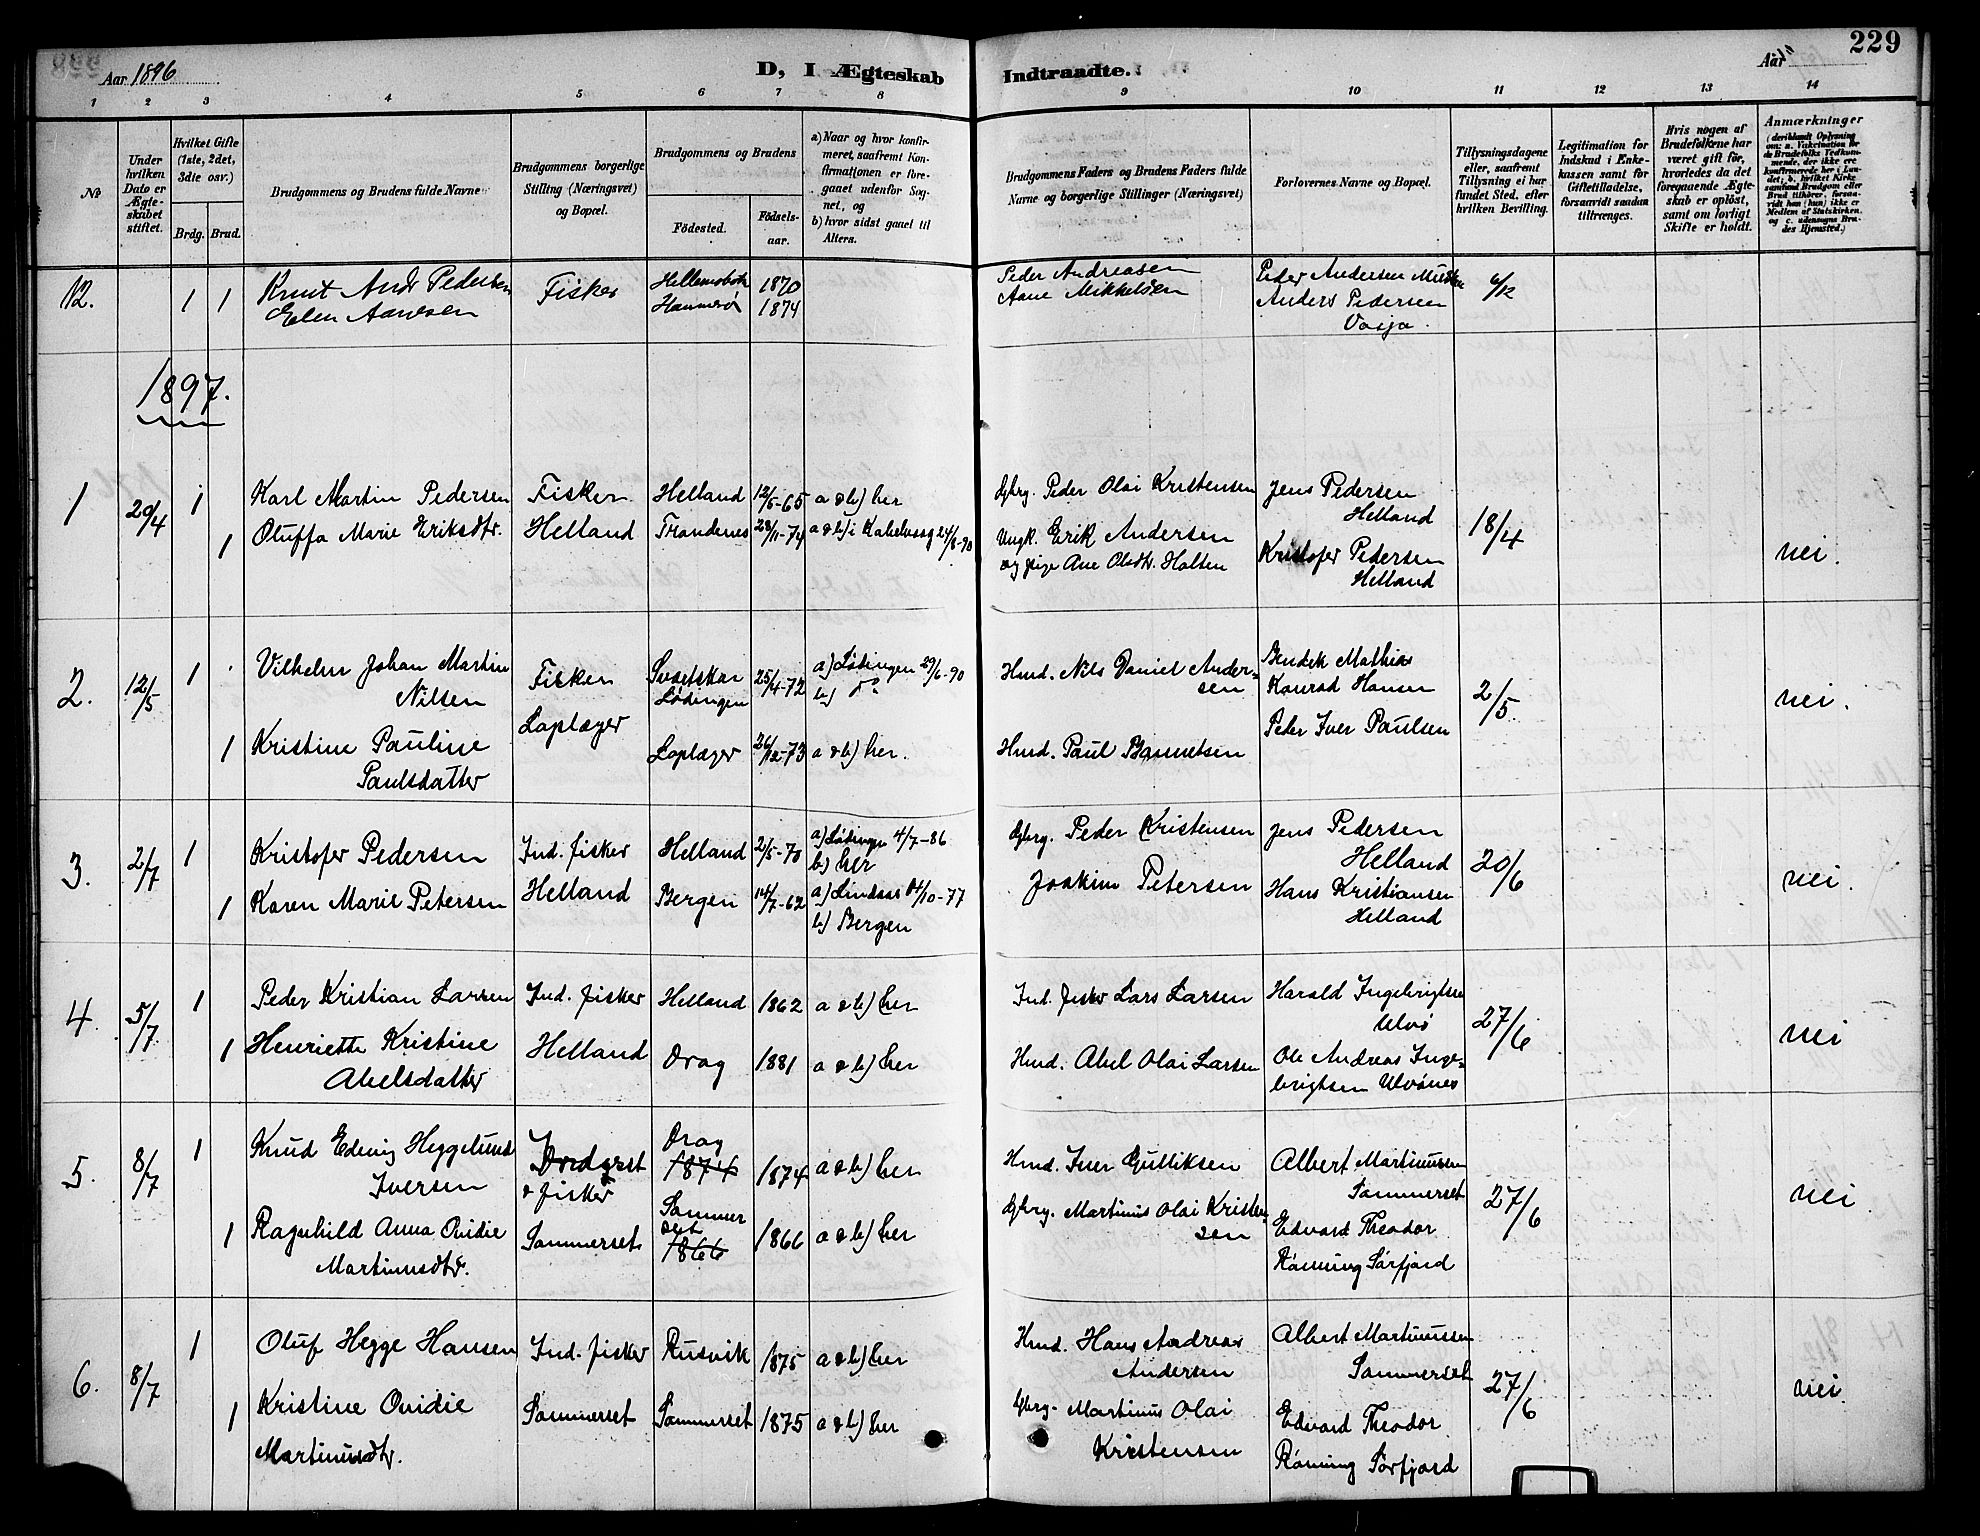 229
Aar 1896
D, I Ægteskab Indtraadte.
Aar
1 2 3 4 5 6 7 8 9 10 11 12 13 14
No
Under hvilken Dato er Ægteskabet stiftet.
Hvilket Gifte (1ste, 2det, 3die osv.)
Brdg. Brud.
Brudgommens og Brudens fulde Navne
Brudgommens borgerlige Stilling (Næringsvei) og Bopæl.
Brudgommens og Brudens
Fødested. Fødselsaar.
a) Naar og hvor konfirmeret, saafremt Konfirmationen er foregaaet udenfor Sognet, og
b) hvor sidst gaaet til Alters.
Brudgommens Faders og Brudens Faders fulde Navne og borgerlige Stillinger (Næringsvei)
Forlovernes Navne og Bopæl.
Tillysningsdagene eller, saafremt Tillysning ei har fundet Sted, efter hvilken Bevilling.
Legitimation for Indskud i Enkekassen samt for Giftetilladelse, forsaavidt saadan tiltrænges.
Hvis nogen af Brudefolkene har været gift før, hvorledes da det foregaaende Ægteskab er opløst, samt om lovligt Skifte er holdt.
Anmærkninger (deriblandt Oplysning om: a. Vakcination for de Brudefolks Vedkommende, der ikke ere konfirmerede her i Landet; b. hvilket Kirkesamfund Brudgom eller Brud tilhører, forsaavidt han (hun) ikke er Medlem af Statskirken, og c. udensogns Brudes Hjemsted.)
12. 1 1 Knut Andr Pedersen Fisker Hellemobotn 1870 Peder Andreasen Peder Andersen Musken 6/12
Elen Aanesen Hammerø 1874 Aane Mikkelsen Anders Pedersen
Vaija.
1897.
1 29/4 1 Karl Martin Pedersen Fisker Helland 12/5-65 a & b) her Gbrg. Peder Olai Kristensen Jens Pedersen
Helland
1 Oluffa Marie Eriksdtr. Helland Trondenes 28/11-74 a & b) i Kabelvaag 24/8-90 Ungk. Erik Andersen 18/4
og pige Ane Olsdtr. Holten Kristofer Pedersen
Helland nei.
2. 12/5 1 Vilhelm Johan Martin Fisker Svartskar 25/4-72 a) Lødingen 29/6-90 Hmd. Nils Daniel Andersen Bendik Mathias
Nilsen Lødingen b) do Konrad Hansen 2/5 nei.
1 Kristine Pauline Loplager Loplager 26/12-73 a & b) her. Hmd. Paul Peder Iver Paulsen
Paulsdatter
3. 2/7 1 Kristofer Pedersen Ind. fisker Helland 2/5-70 a) Lødingen 4/7-86 Gbrg. Peder Kristensen Jens Pedersen
b) her Helland 20/6
1 Karen Marie Petersen Helland Bergen 14/7-62 a) Lindaas 14/10-77 Joakim Petersen Hans Kristiansen nei.
b) Bergen Helland
4. 5/7 1 Peder Kristian Larsen Ind. fisker Helland 1862 a & b) her Ind. fisker Lars Larsen Harald Ingebrigtsen
Ulvø 27/6
1 Henriette Kristine Helland Drag 1881 a & b) her Hmd. Abel Olai Larsen Ole Andreas Inge- nei
Abelsdatter brigtsen Ulvønes
5. 8/7 1 Knud Edevig Heggelund Drag 1874 1874 a & b) her Hmd. Iver Gulliksen Albert Martinussen
Iversen & fisker Sommerset 27/6
1 Ragnhild Anna Ovidie Sommerset Sommerset 1866 1866 a & b) her Gbrg. Martinus Olai Kristensen Edvard Theodor nei
Martinusdtr. Rønning Sørfjord
6. 8/7 1 Oluf Hegge Hansen Ind. fisker Rusvik 1875 a & b) her Hmd. Hans Andreas Albert Martinussen
Andersen Sommerset 27/6
1 Kristine Ovidie Sommerset Sommerset 1875 a & b) her Gbrg. Martinus Olai Edvard Theodor nei
Martinusdtr. Kristensen Rønning Sørfjord